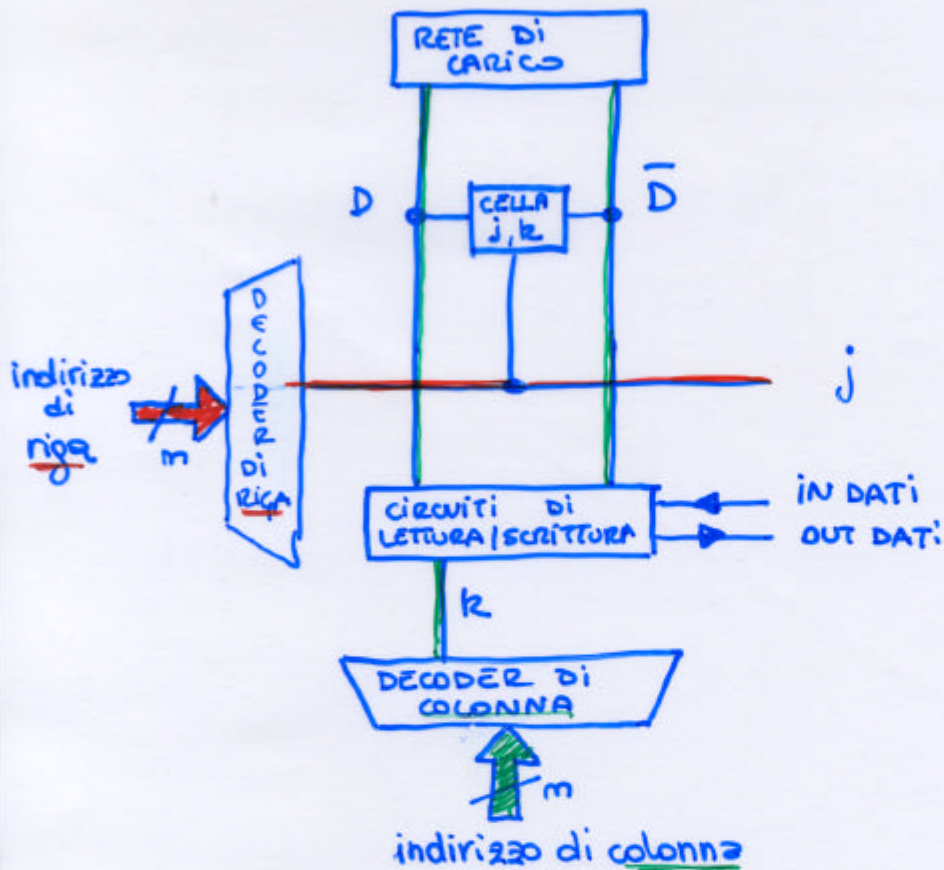 RETE DI
CARICO
D
CELLA
j, k
D̅
DECODER DI
RIGA
indirizzo
di
riga
m
j
CIRCUITI DI
LETTURA/SCRITTURA
IN DATI
OUT DATI
k
DECODER DI
COLONNA
m
indirizzo di colonna